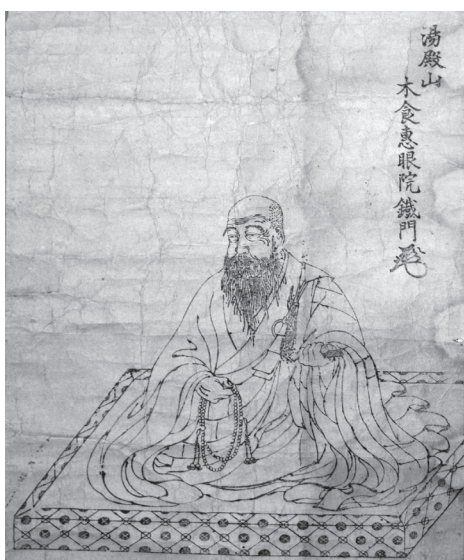 湯殿山
木食惠眼院鐵門